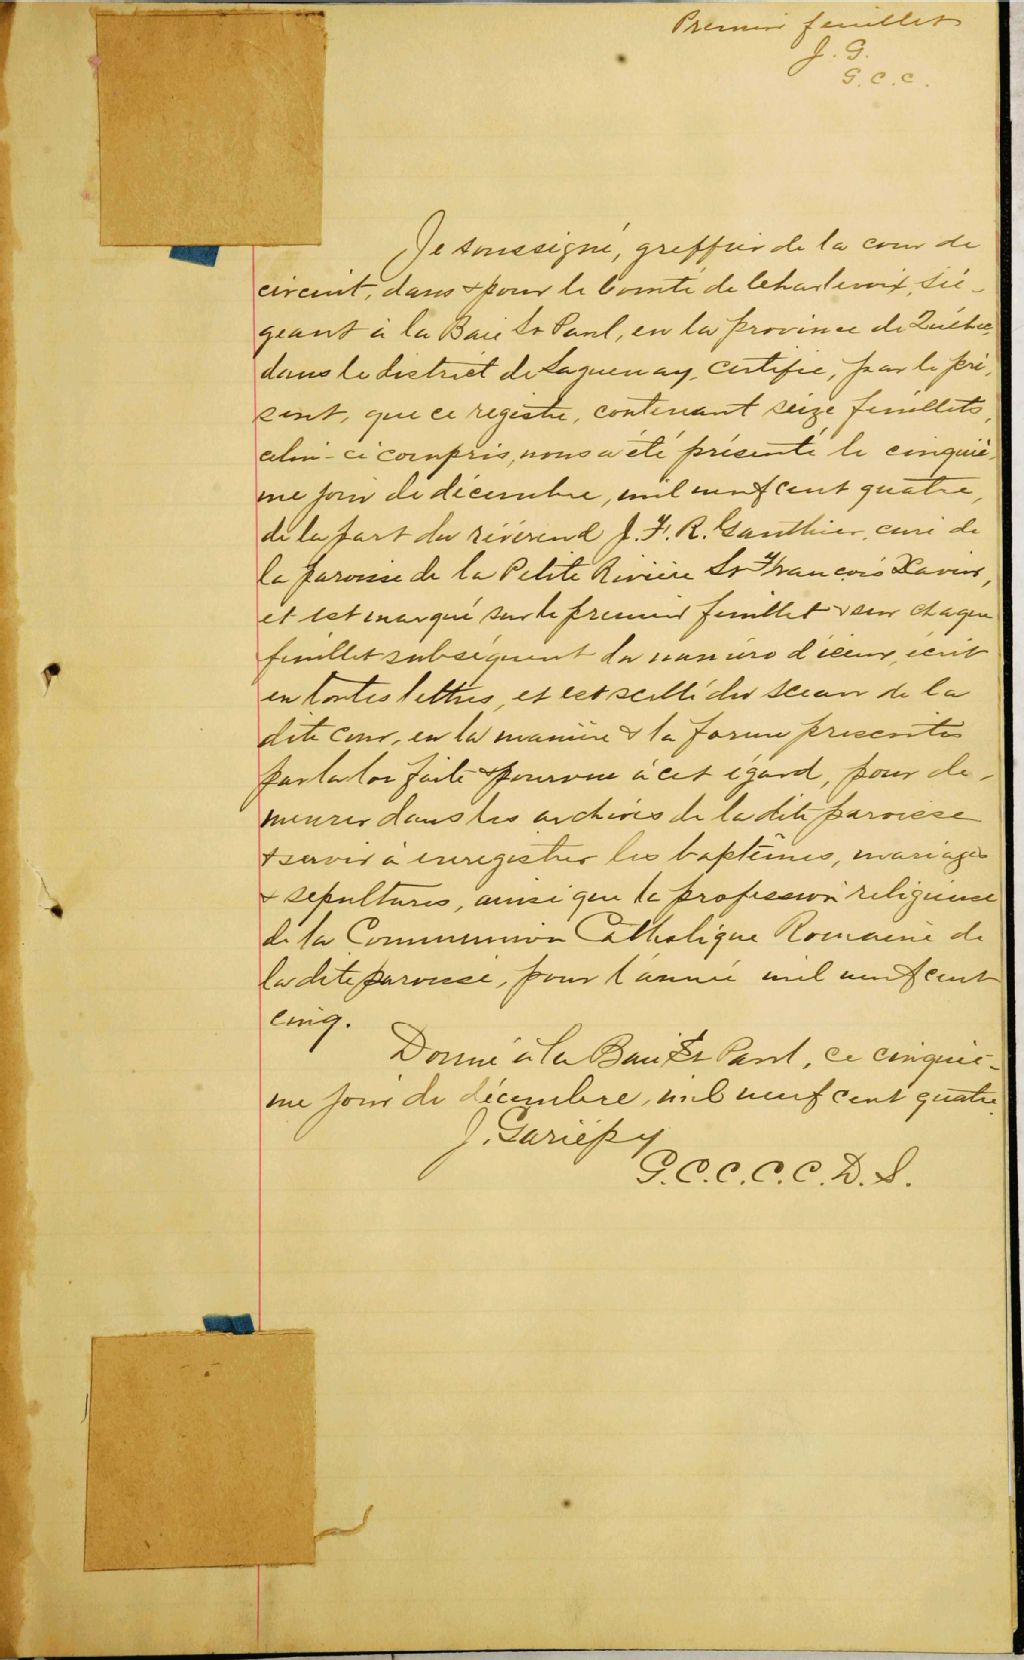 Premier feuillet
J. G.
G. C. C.
Je soussigné, greffier de la cour de
circuit, dans & pour le Comté de Charlevoix, sié-
geant à la Baie St Paul, en la province de Québec,
dans le district de Saguenay, certifie, par le pré-
sent, que ce registre, contenant seize feuillets,
celui-ci compris, nous a été présenté le cinquiè-
me jour de décembre, mil neuf cent quatre,
de la part du révérend J. F. R. Gauthier, curé de
la paroisse de la Petite Rivière St François Xavier,
et est marqué sur le premier feuillet & sur chaque
feuillet subséquent du numéro d'iceux, écrit
en toutes lettres, et est scellé du sceau de la
dite cour, en la manière & la forme prescrites
par la loi faite & pourvue à cet égard, pour de-
meurer dans les archives de la dite paroisse
& servir à enregistrer les baptêmes, mariages
& sepultures, ainsi que la profession religieuse
de la Communion Catholique Romaine de
la dite paroisse, pour l'année mil neuf cent
cinq.
Donné à la Baie St Paul, ce cinquiè-
me jour de décembre, mil neuf cent quatre.
J. Gariépy
G. C. C. C. C. D. S.